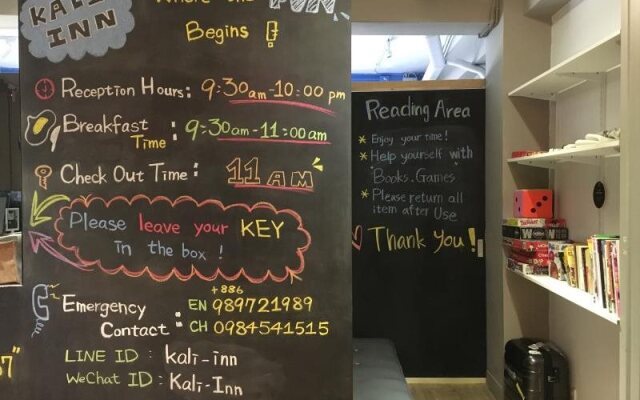 KALI
INN
Where the FUN
Begins !
Reception Hours: 9:30am-10:00 pm
Breakfast
Time : 9:30am-11:00am
Check Out Time: 11 AM
Please leave your KEY
in the box !
Emergency
Contact :
+886
EN 989721989
CH 0984541515
LINE ID : kali-inn
WeChat ID : Kali-Inn
7"
Reading Area
* Enjoy your time!
* Help yourself with
Books.Games
* Please return all
item after Use
Thank You!